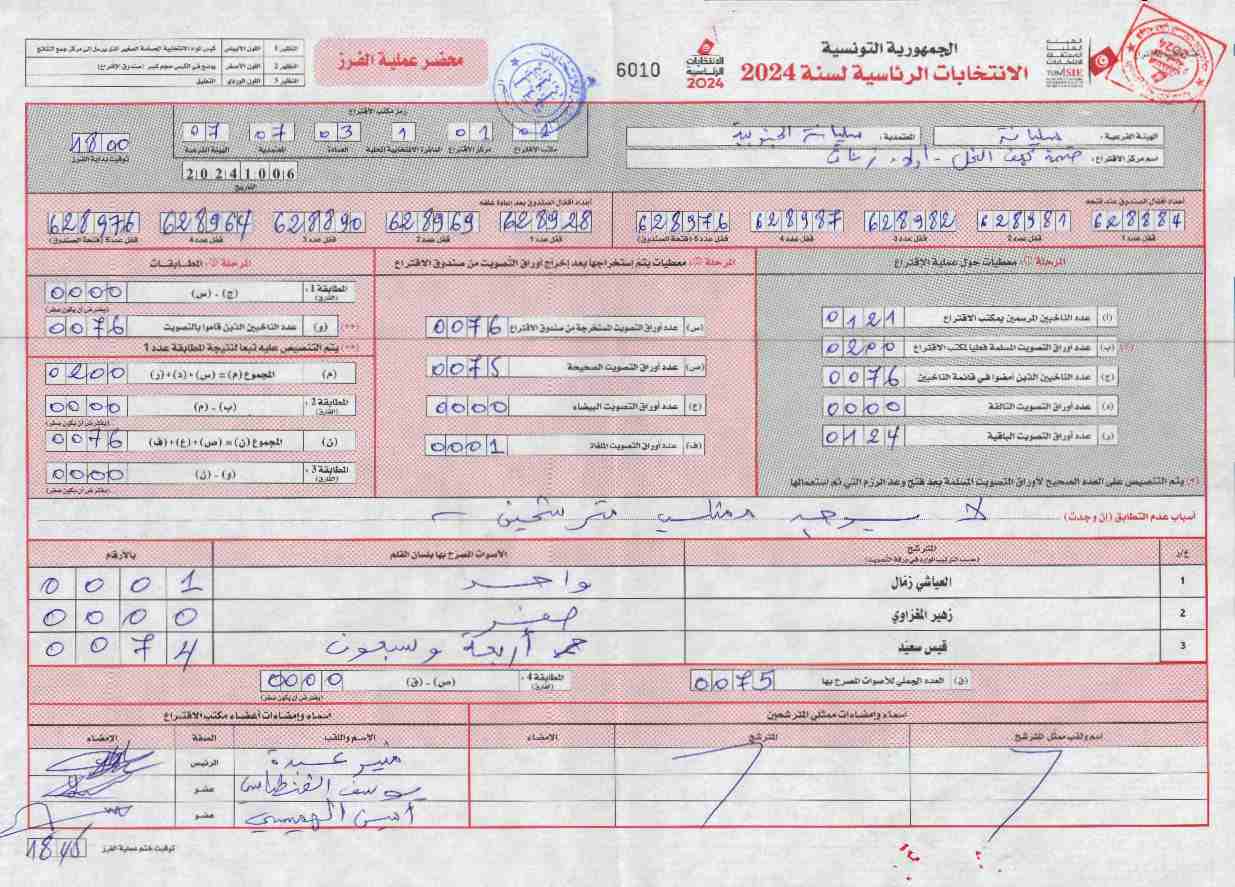 الجمهورية التونسية
الانتخابات الرئاسية لسنة 2024
الهيئة العليا المستقلة للانتخابات
TUNISIE
الانتخابات الرئاسية 2024
6010
محضر عملية الفرز
النظير 1 | اللون الأبيض | كيس المواد الانتخابية الصمامة الصغير الذي يرسل إلى مركز جمع النتائج
النظير 2 | اللون الأصفر | يوضع في الكيس حجم كبير (صندوق الاقتراع)
النظير 3 | اللون الوردي | التعليق
الهيئة الفرعية : سليانة
المعتمدية : سليانة الجنوبية
اسم مركز الاقتراع :
رمز مكتب الاقتراع
01 01 1 03 07 07
مكتب الاقتراع مركز الاقتراع الدائرة الانتخابية المحلية العمادة المعتمدية الهيئة الفرعية
20241006
التاريخ
1800
توقيت بداية الفرز
أعداد أقفال الصندوق عند فتحه
628884 628981 628982 628987 628976
قفل عدد 1 قفل عدد 2 قفل عدد 3 قفل عدد 4 قفل عدد 5 (فتحة الصندوق)
أعداد أقفال الصندوق بعد إعادة غلقه
628928 628969 628890 628964 628976
قفل عدد 1 قفل عدد 2 قفل عدد 3 قفل عدد 4 قفل عدد 5 (فتحة الصندوق)
المرحلة 1: معطيات حول عملية الاقتراع
(أ) عدد الناخبين المرسمين بمكتب الاقتراع 0121
(*) (ب) عدد أوراق التصويت المسلمة فعليا لمكتب الاقتراع 0200
(ج) عدد الناخبين الذين أمضوا في قائمة الناخبين 0076
(د) عدد أوراق التصويت التالفة 0000
(ر) عدد أوراق التصويت الباقية 0124
(*) يتم التنصيص على العدد الصحيح لأوراق التصويت المسلمة بعد فتح وعد الرزم التي تم استعمالها
المرحلة 2: معطيات يتم إستخراجها بعد إخراج أوراق التصويت من صندوق الاقتراع
(س) عدد أوراق التصويت المستخرجة من صندوق الاقتراع 0076
(ص) عدد أوراق التصويت الصحيحة 0075
(ع) عدد أوراق التصويت البيضاء 0000
(ف) عدد أوراق التصويت الملغاة 0001
المرحلة 3: المطابقات
المطابقة 1 : (الفارق) (ج) - (س) 0000
(يفترض أن يكون صفر)
(**) (و) عدد الناخبين الذين قاموا بالتصويت 0076
(**) يتم التنصيص عليه تبعا لنتيجة المطابقة عدد 1
(م) المجموع (م) = (س)+(د)+(ر) 0200
المطابقة 2 : (الفارق) (ب) - (م) 0000
(يفترض أن يكون صفر)
(ن) المجموع (ن) = (ص)+(ع)+(ف) 0076
المطابقة 3 : (الفارق) (و) - (ن) 0000
(يفترض أن يكون صفر)
أسباب عدم التطابق (إن وجدت) : لا يوجد ممثلي مترشحين
ع/ر | المترشح (حسب الترتيب الوارد في ورقة التصويت) | الأصوات المصرح بها بلسان القلم | بالأرقام
1 العياشي زمّال واحد 0001
2 زهير المغزاوي صفر 0000
3 قيس سعيّد أربعة وسبعون 0074
(ق) العدد الجملي للأصوات المصرح بها 0075
المطابقة 4 : (الفارق) (ص) - (ق) 0000
(يفترض أن يكون صفر)
أسماء وإمضاءات ممثلي المترشحين
اسم ولقب ممثل المترشح | المترشح | الامضاء
أسماء وإمضاءات أعضاء مكتب الاقتراع
الاسم واللقب | الصفة | الإمضاء
الرئيس
يوسف عضو
عضو
توقيت ختم عملية الفرز 1845